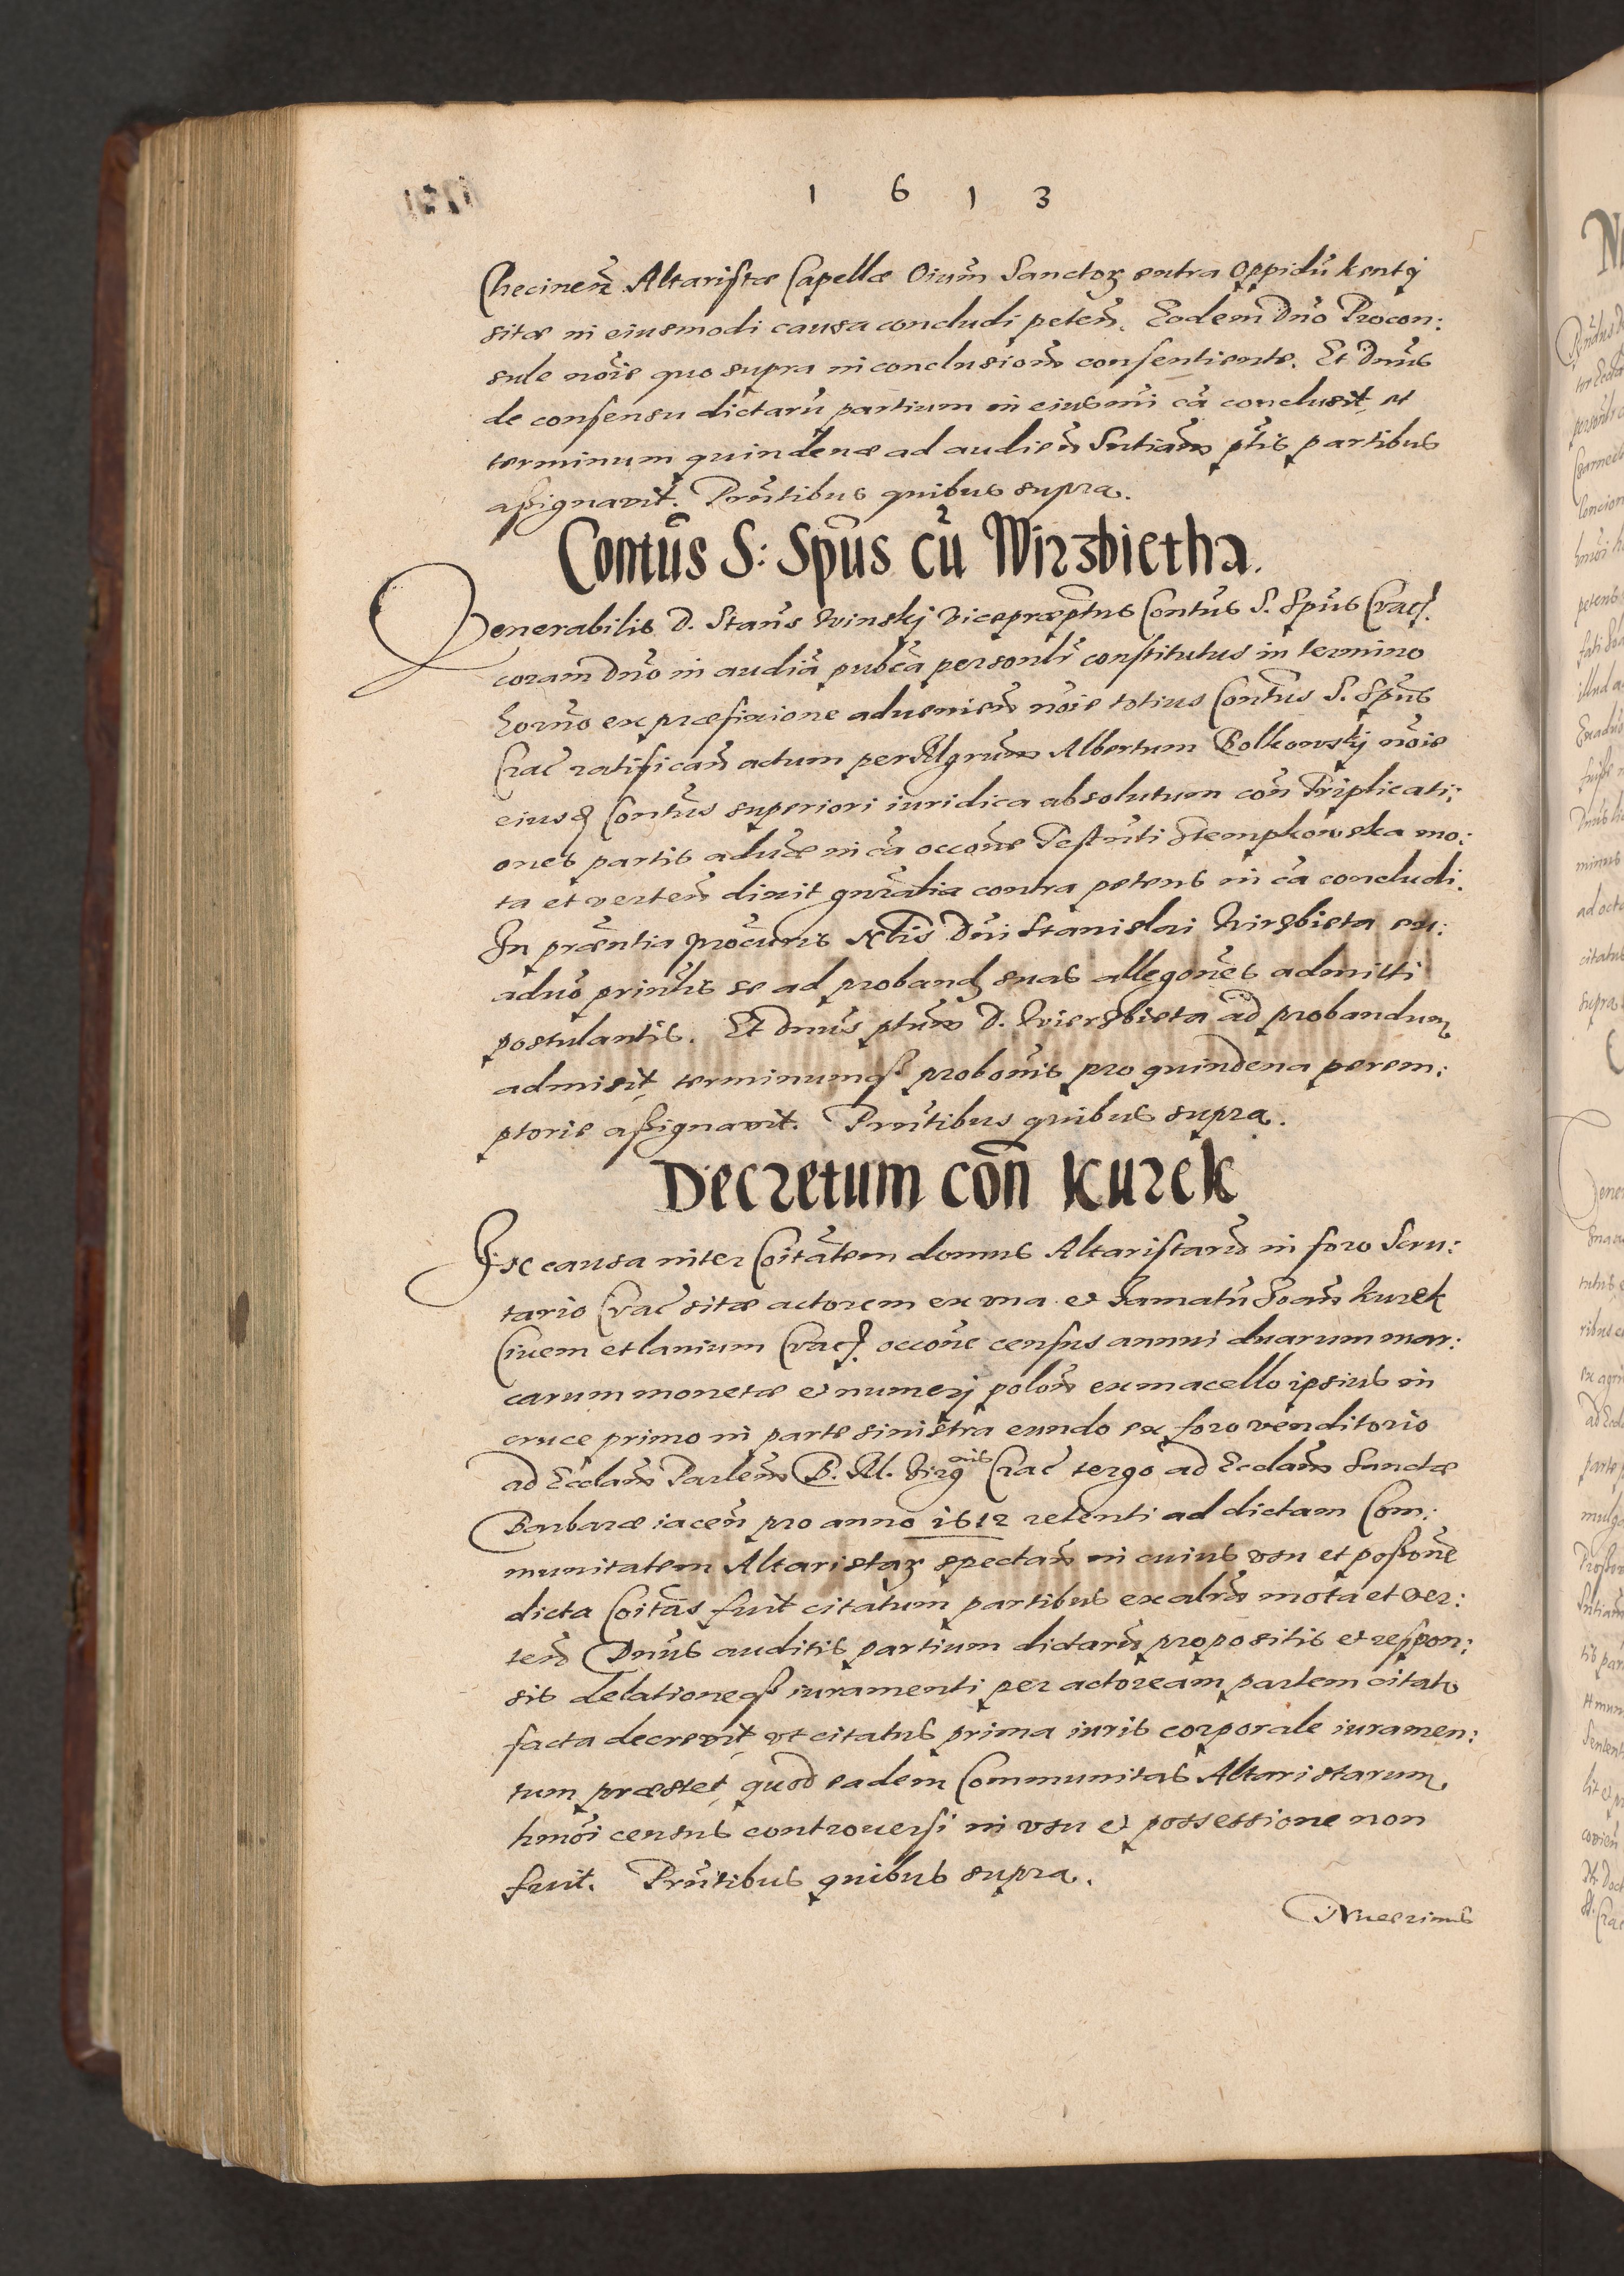 1613
Checinen̄ Altaristæ Capellæ Oium̄ Sanctoꝝ extra Oppidū Kenty
sitæ in eiusmodi causa concludi peten̄. Eodem Dn̄o Procon:
sule nōīe quo supra in conclusionē consentiente. Et Dn̄us
de consensu dictarū partium in eiusmī cā conclusit et
terminum quindenæ ad audien̄ Sn̄tiam ptīs partibus
aßignavit. Pn̄tibus quibus supra.
Contūs S: Spūs cū Wirzbietha.
Venerabilis D. Stan̄s Winskj Vicepræpt̄us Contūs S. Spūs Crac̄.
coram Dn̄o in audiā pub̄ca personlr̄ constitutus in termino
hor̄no ex præfixione advenien̄ nōīe totius Contūs S. Spūs
Crac̄ ratifican̄ actum per Mgrūm Albertum Bolkowskj nōīe
eiusd Contūs superiori iuridica absolutum con̄ Triplicati:
ones partis adusæ in cā occōne Test̄nti Stempkowska mo:
ta et verten̄ dixit gn̄ralia contra petens in cā concludi.
In præn̄tia procuris Nlīs Dn̄i Stanislai Wirzbieta ex:
aduō prin̄lis se ad proband suas allegōnes admitti
postulantis. Et Dn̄us ptūm D. Wierzbieta ad probandum
admisit, terminumqꝫ probōnis pro quindena perem:
ptorie aßignavit. Pn̄tibus quibus supra.
Decretum con̄ Kurek
In causa inter Cōitātem domus Altaristarū in foro Scru:
tario Crac̄ sitæ actorem ex vna et Famatū Joan̄ Kurek
Ciuem et lanium Crac̄. occōne census annui duarum mar:
carum monetæ et numerj polon̄ ex macello ipsius in
cruce primo in parte sinistra eundo ex foro venditorio
ad Ecclām Parlem̄ B. M. Virgᵢₙᵢₛ Crac̄ tergo ad Ecclām Sanctæ
Barbaræ iacen̄ pro anno 1612 retenti ad dictam Com:
munitatem Altaristaꝝ spectan̄ in cuius vsu et poßōne
dicta Cōitās fuit citatum partibus ex alrā mota et ver:
ten̄ Dn̄us auditis partium dictarū propositis et respon:
sis delationeqꝫ iuramenti per actoream partem citato
facta decrevit, vt citatus prima iuris corporale iuramen:
tum præstet, quod eadem Communitas Altaristarum
hmōi census controuersi in vsu et possessione non
fuit. Pn̄tibus quibus supra.